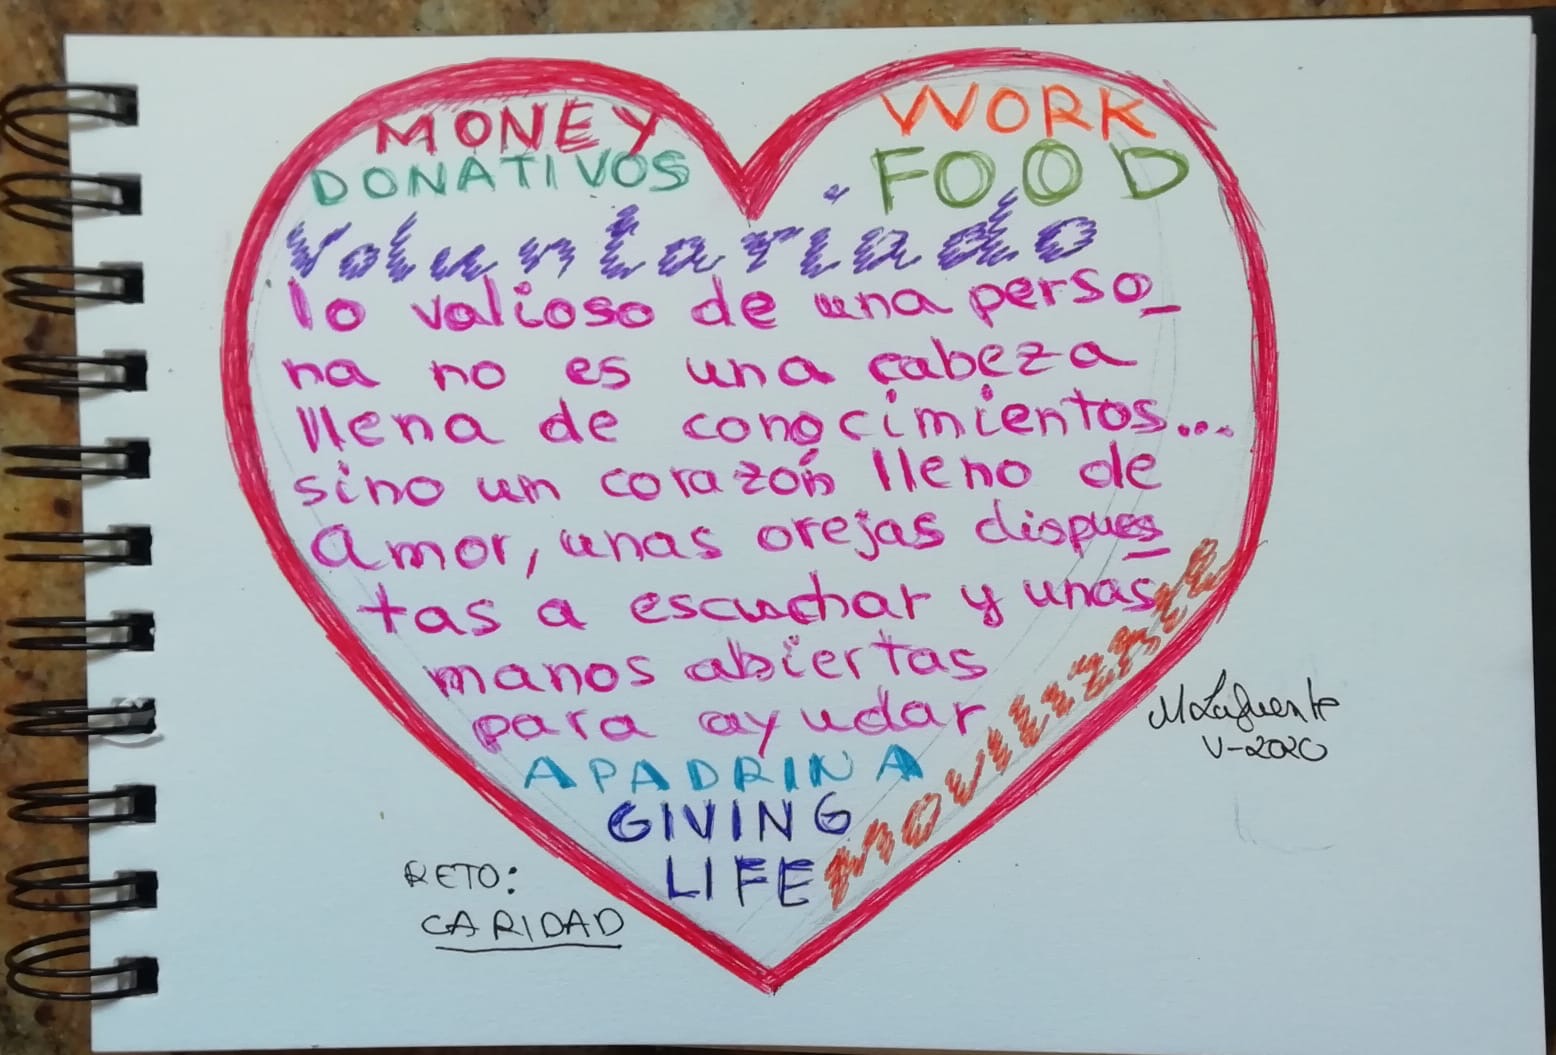 MONEY
WORK
DONATIVOS
FOOD
Voluntariado
lo valioso de una perso_
na no es una cabeza
llena de conocimientos...
sino un corazón lleno de
Amor, unas orejas dispues
tas a escuchar y unas
manos abiertas
para ayudar
APADRINA
GIVING
LIFE
MOVILIZATE
RETO:
CARIDAD
MLafuente
V-2020